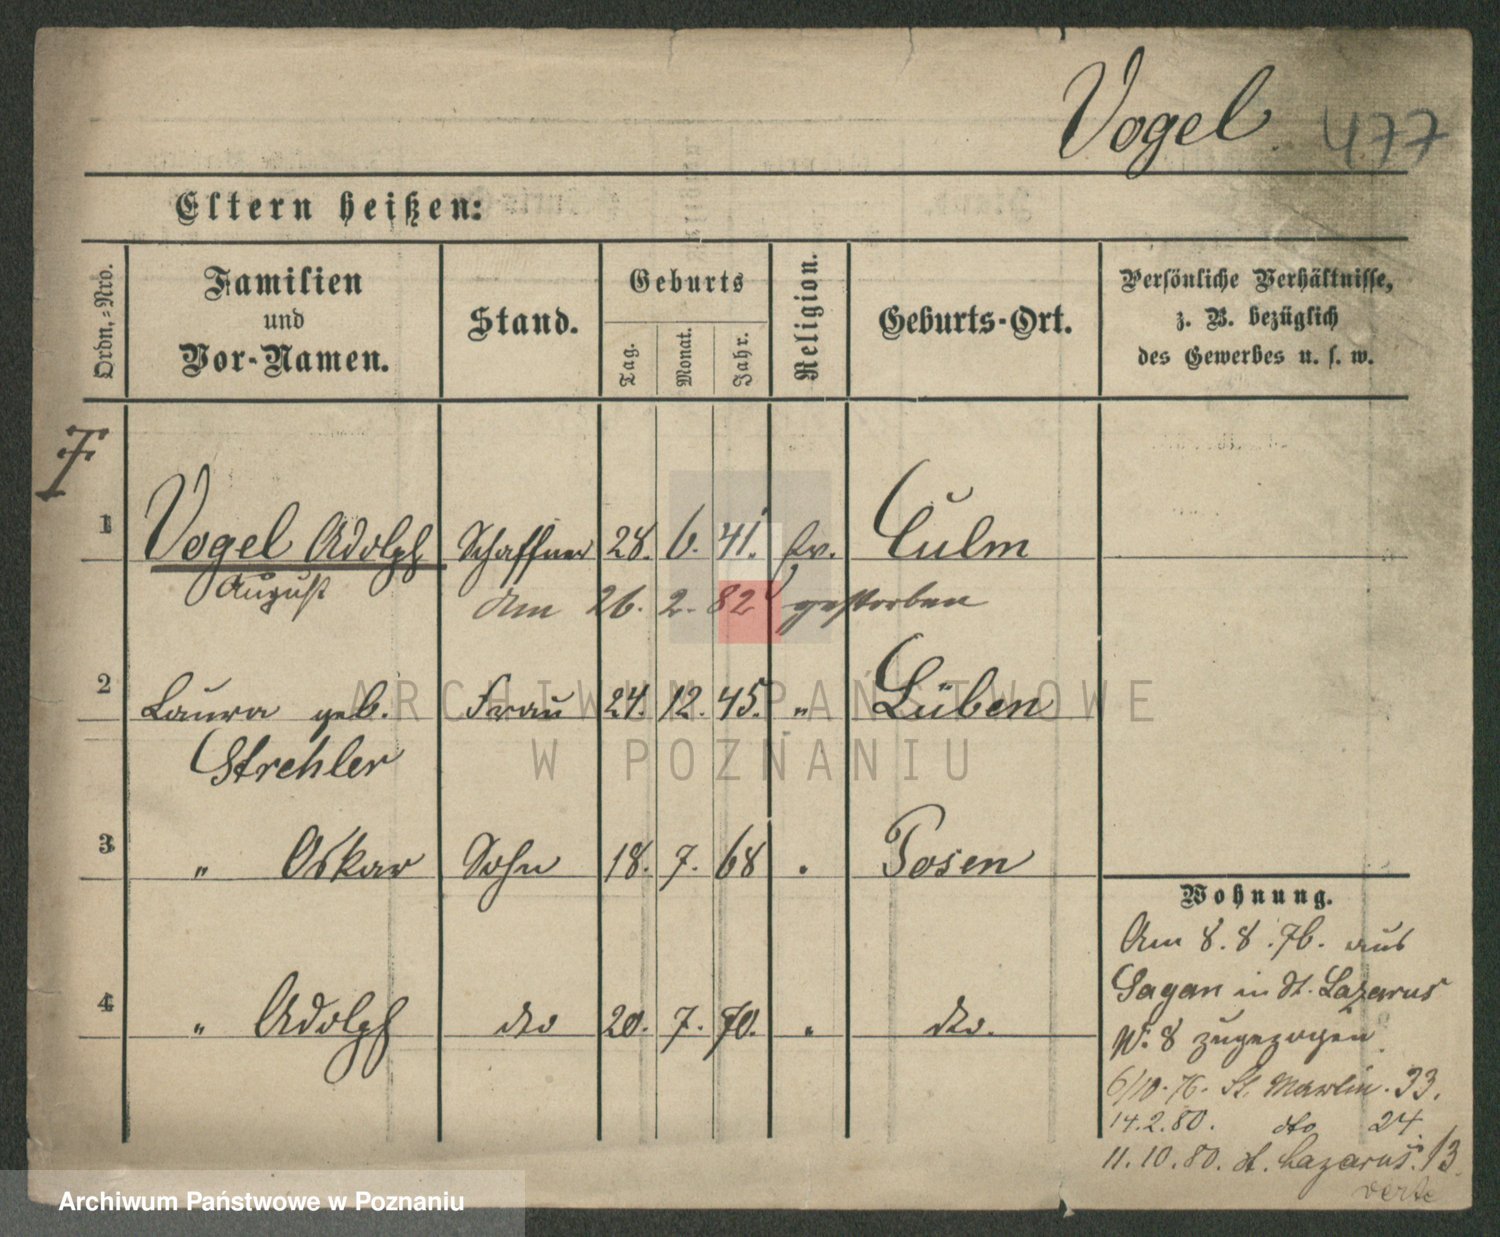 Vogel. 477
Eltern heißen:
Ordn.-Nro.
Familien
und
Vor-Namen.
Stand.
Geburts
Tag.
Monat.
Jahr.
Religion.
Geburts-Ort.
Persönliche Verhältnisse,
z. B. bezüglich
des Gewerbes u. s. w.
1 Vogel Adolph Schaffner 28. 6. 41. ev. Culm
August
Am 26. 2. 82 gestorben
2 Laura geb. Frau 24. 12. 45. " Lüben
Strehler
3 " Oskar Sohn 18. 7. 68 " Posen
4 " Adolph dto 20. 7. 70. " dto.
Wohnung.
Am 8. 8. 76. aus
Sagan in St. Lazarus
No. 8 zugezogen
6/10. 76. St. Martin. 33.
14. 2. 80. dto 24.
11. 10. 80. St. Lazarus. 13.
verte
ARCHIWUM PAŃSTWOWE
W POZNANIU
Archiwum Państwowe w Poznaniu